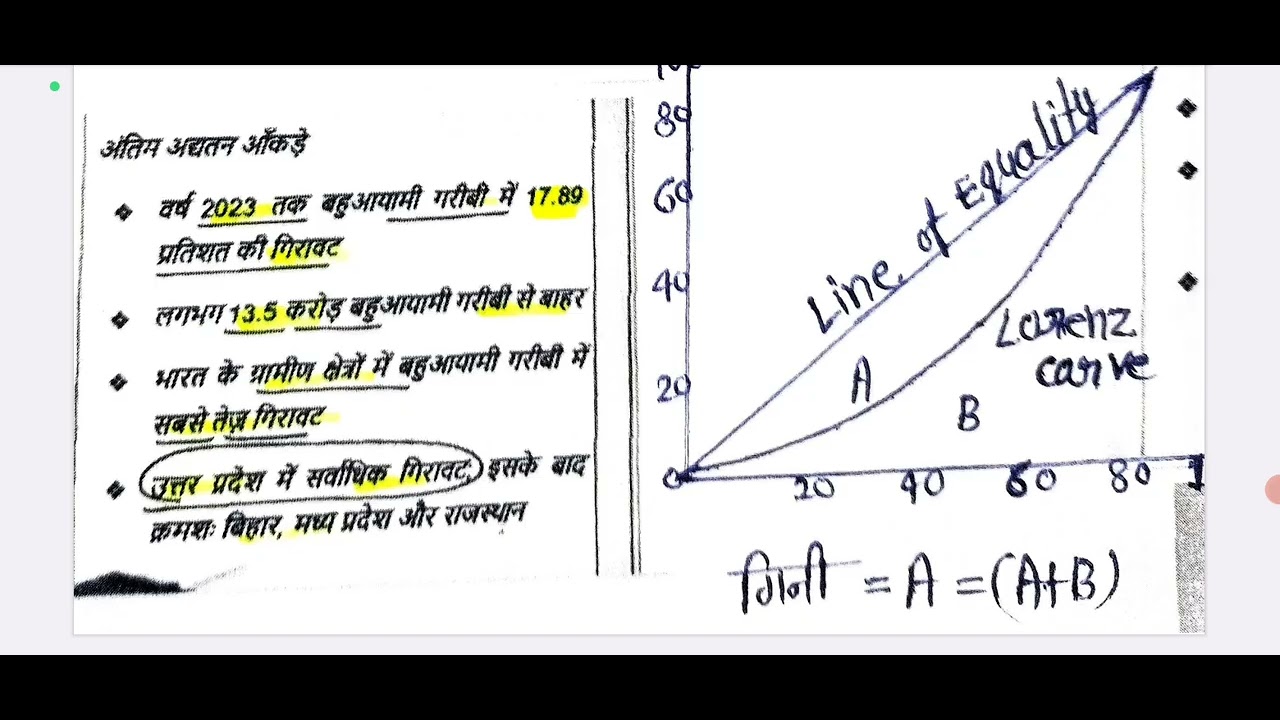 अंतिम अद्यतन आँकड़े
❖ वर्ष 2023 तक बहुआयामी गरीबी में 17.89
प्रतिशत की गिरावट
❖ लगभग 13.5 करोड़ बहुआयामी गरीबी से बाहर
❖ भारत के ग्रामीण क्षेत्रों में बहुआयामी गरीबी में
सबसे तेज़ गिरावट
❖ उत्तर प्रदेश में सर्वाधिक गिरावट, इसके बाद
क्रमशः बिहार, मध्य प्रदेश और राजस्थान
80
60
40
20
0
20 40 60 80
Line of Equality
A
B
Lorenz
carve
गिनी = A = (A+B)